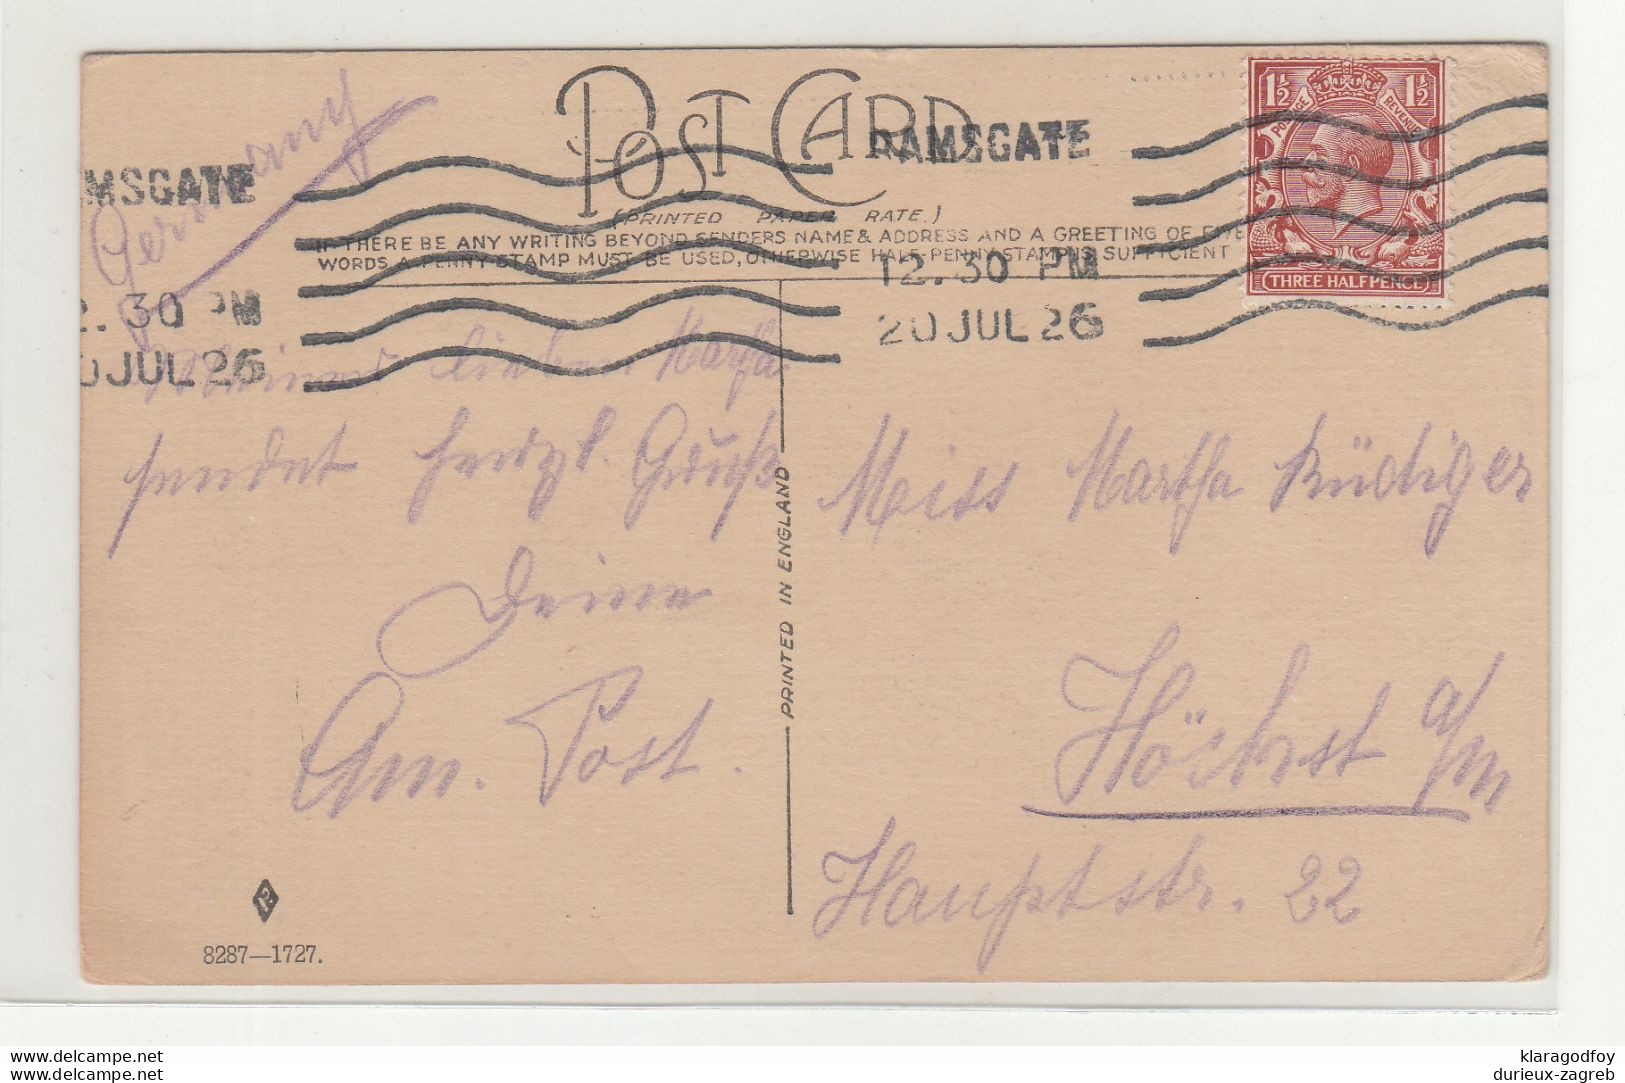 Germany
POST CARD
(PRINTED PAPER RATE.)
IF THERE BE ANY WRITING BEYOND SENDERS NAME & ADDRESS AND A GREETING OF FIVE
WORDS A PENNY STAMP MUST BE USED, OTHERWISE HALFPENNY STAMP IS SUFFICIENT
RAMSGATE
12.30 PM
20 JUL 26
AMSGATE
2.30 PM
0 JUL 26
1½ 1½
POSTAGE REVENUE
THREE HALFPENCE
Meiner lieben Martha
sendet herzl. Gruß
Deine
Am. Post.
PRINTED IN ENGLAND
Miss Martha Rüdiger
Höchst a/M
Hauptstr. 22
8287—1727.
www.delcampe.net
www.delcampe.net
klaragodfoy
durieux-zagreb